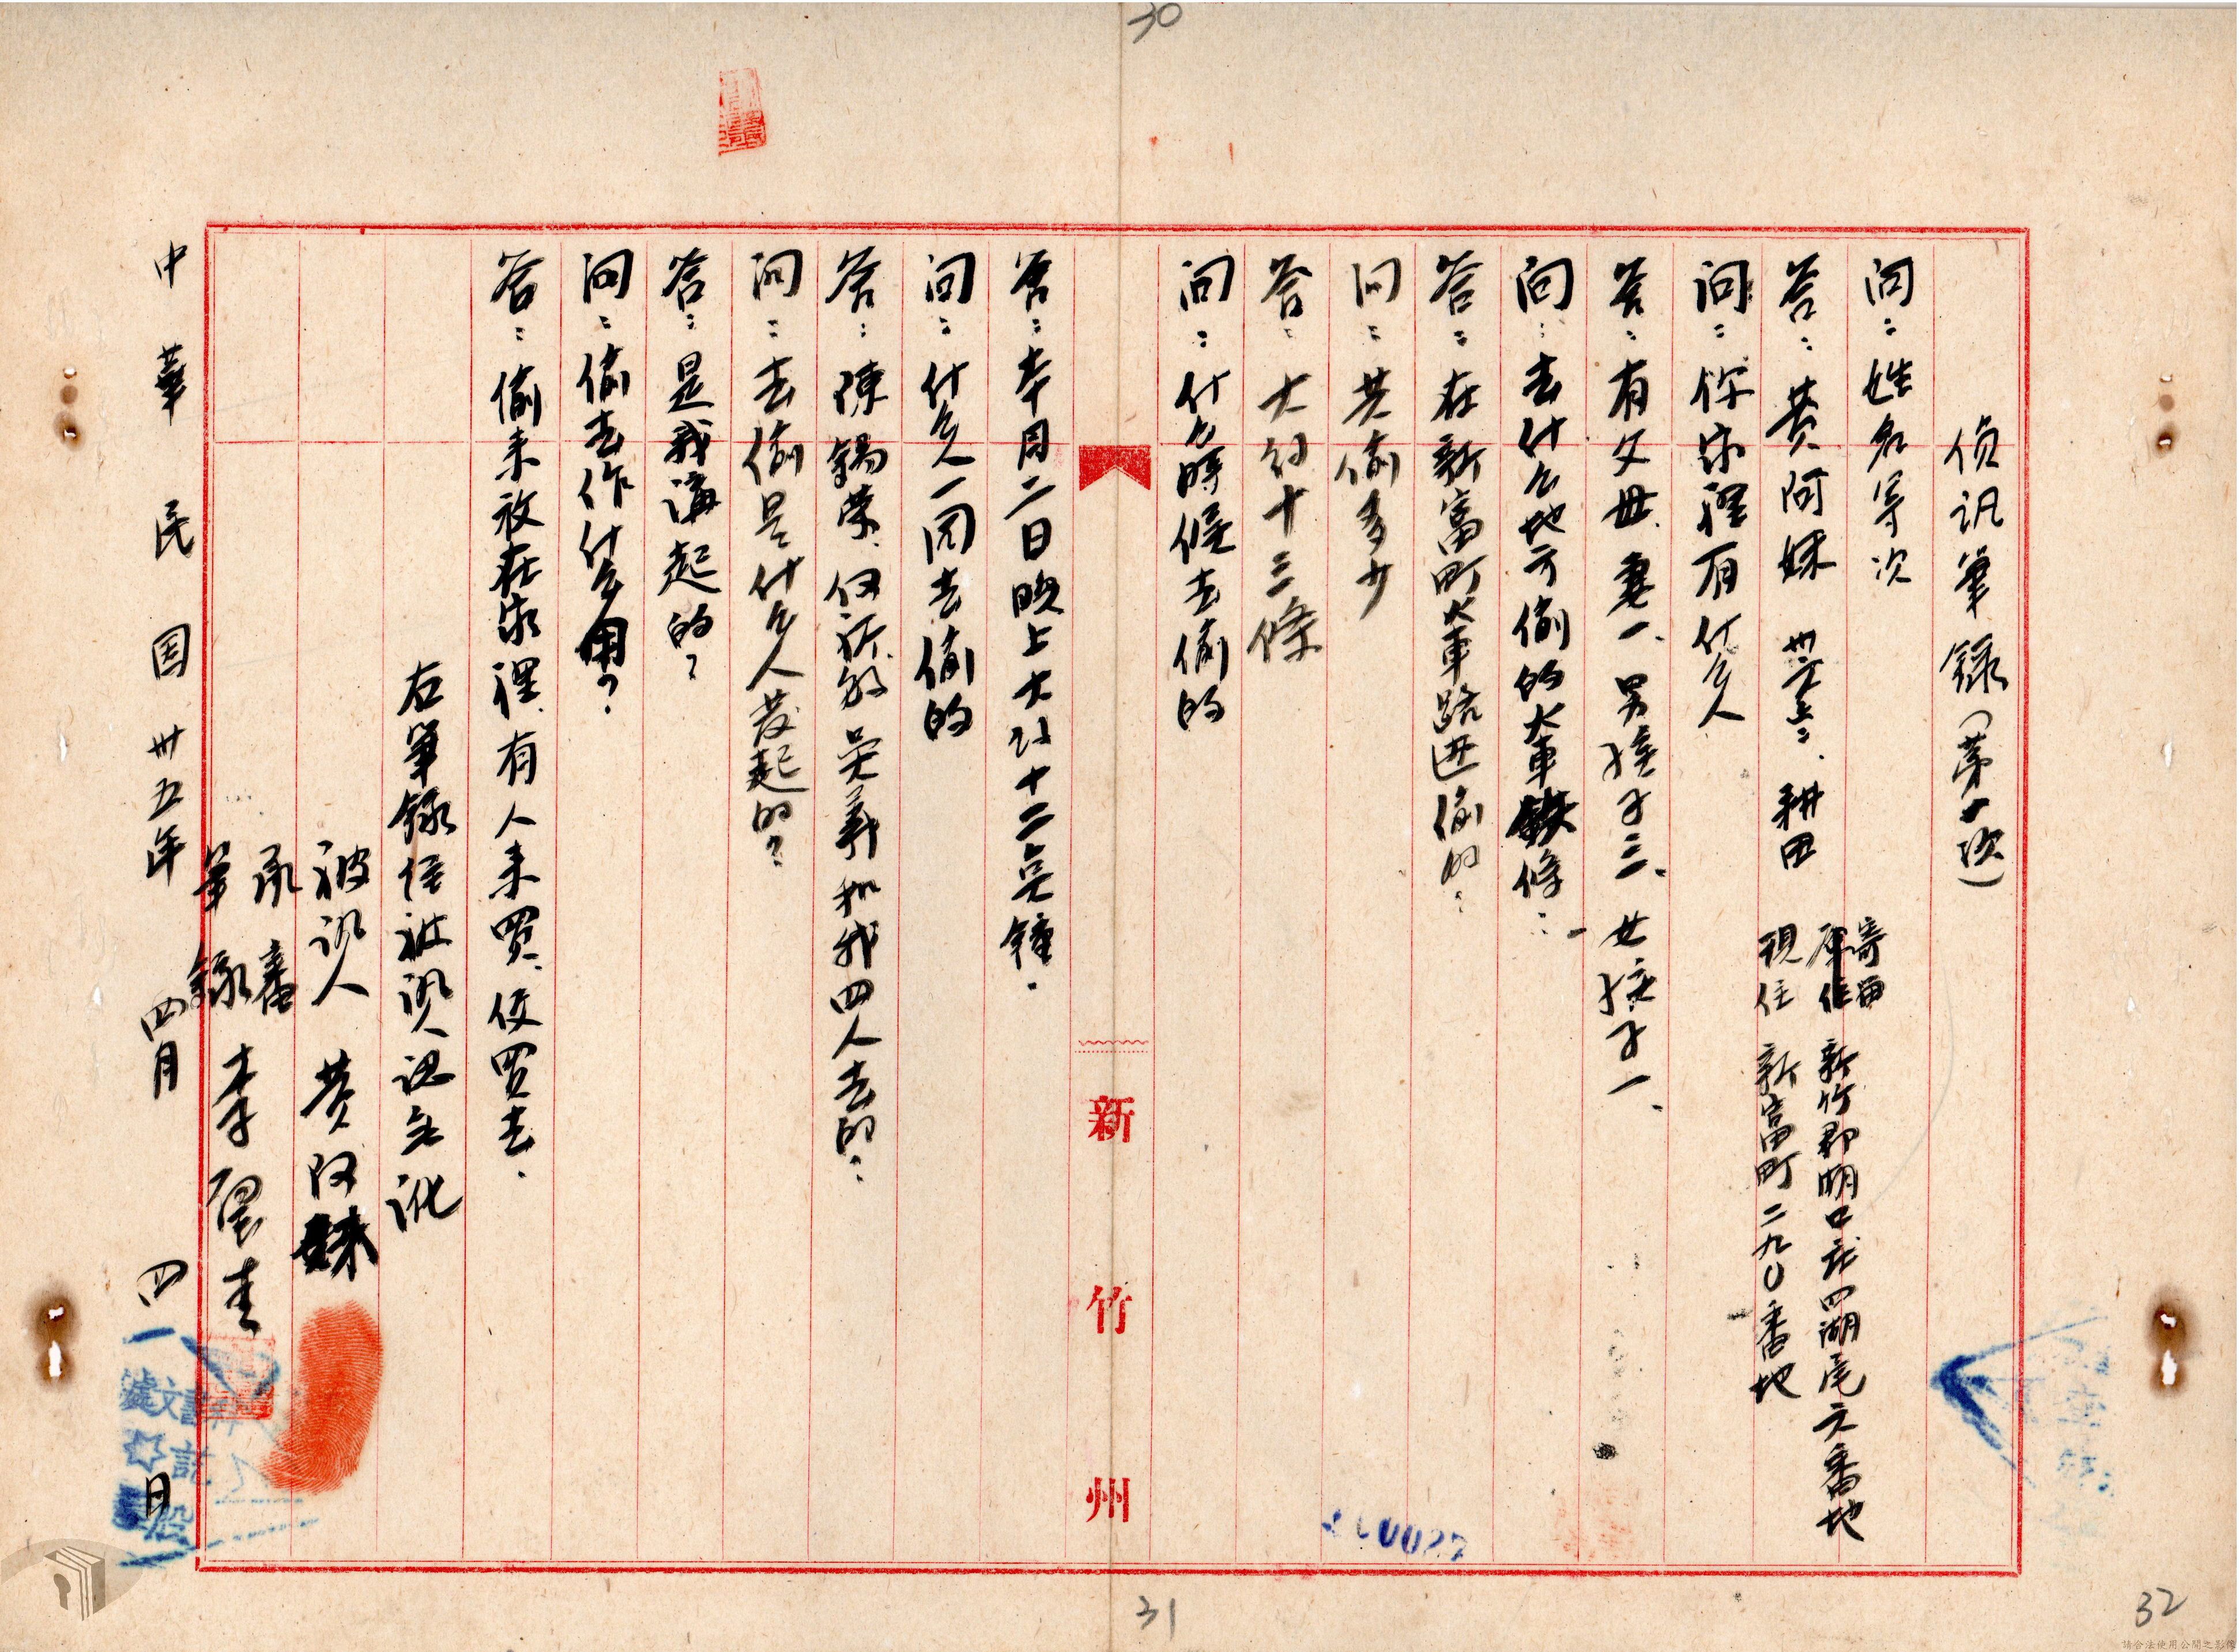 30
偵訊筆錄(第一次)
問:姓名等次
答:黃阿妹 卅 耕田
寄留
原住 新竹郡湖口庄四湖尾六番地
現住 新富町二九〇番地
問:你家裡有什么人
答:有父母、妻一、男孩子三、女孩子一、
問:去什么地方偷的火車鉄條:
答:在新富町火車路邊偷的:
問:共偷多少
答:大約十三條
問:什么時候去偷的
新竹州
答:本月二日晚上大約十二点鐘.
問:什么人一同去偷的
答:陳錫荣、何 吳義和我四人去的:
問:去偷是什么人發起的?
答:是我講起的?
問:偷去作什么用?
答:偷來放在家裡、有人來買、使買去.
右筆錄経被訊人認無訛
被訊人 黃阿妹
承審
筆錄 李
中華民国卅五年四月四日
31
32
請合法使用公開之影像